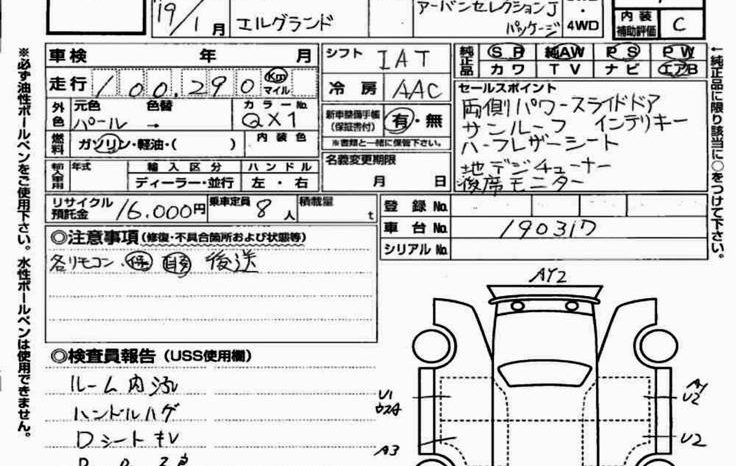 19/1月
エルグランド
アーバンセレクションJ
パッケージ
4WD
内装
補助評価 C
車検 年 月
シフト IAT
純正品 SR 純AW PS PW
カワ TV ナビ エアB
走行 100,290 Km マイル
冷房 AAC
セールスポイント
両側パワースライドドア
サンルーフ インテリキー
ハーフレザーシート
地デジチューナー
後席モニター
外色 元色 色替 カラーNo.
パール → QX1
新車整備手帳
(保証書付) 有・無
※書類と一緒に保管下さい。
燃料 ガソリン・軽油・( ) 内装色
名義変更期限
月 日
年式 輸入区分 ハンドル
ディーラー・並行 左・右
リサイクル
預託金 16,000円
乗車定員 8人
積載量 t
登録No.
車台No. 190317
シリアルNo.
◎注意事項(修復・不具合箇所および状態等)
各リモコン 後送
◎検査員報告(USS使用欄)
ルーム内汚
ハンドルハゲ
Dシートキレ
AY2
U1
A3
U2
U2
※必ず油性ボールペンをご使用下さい。水性ボールペンは使用できません。
←純正品に限り該当に○をつけて下さい。